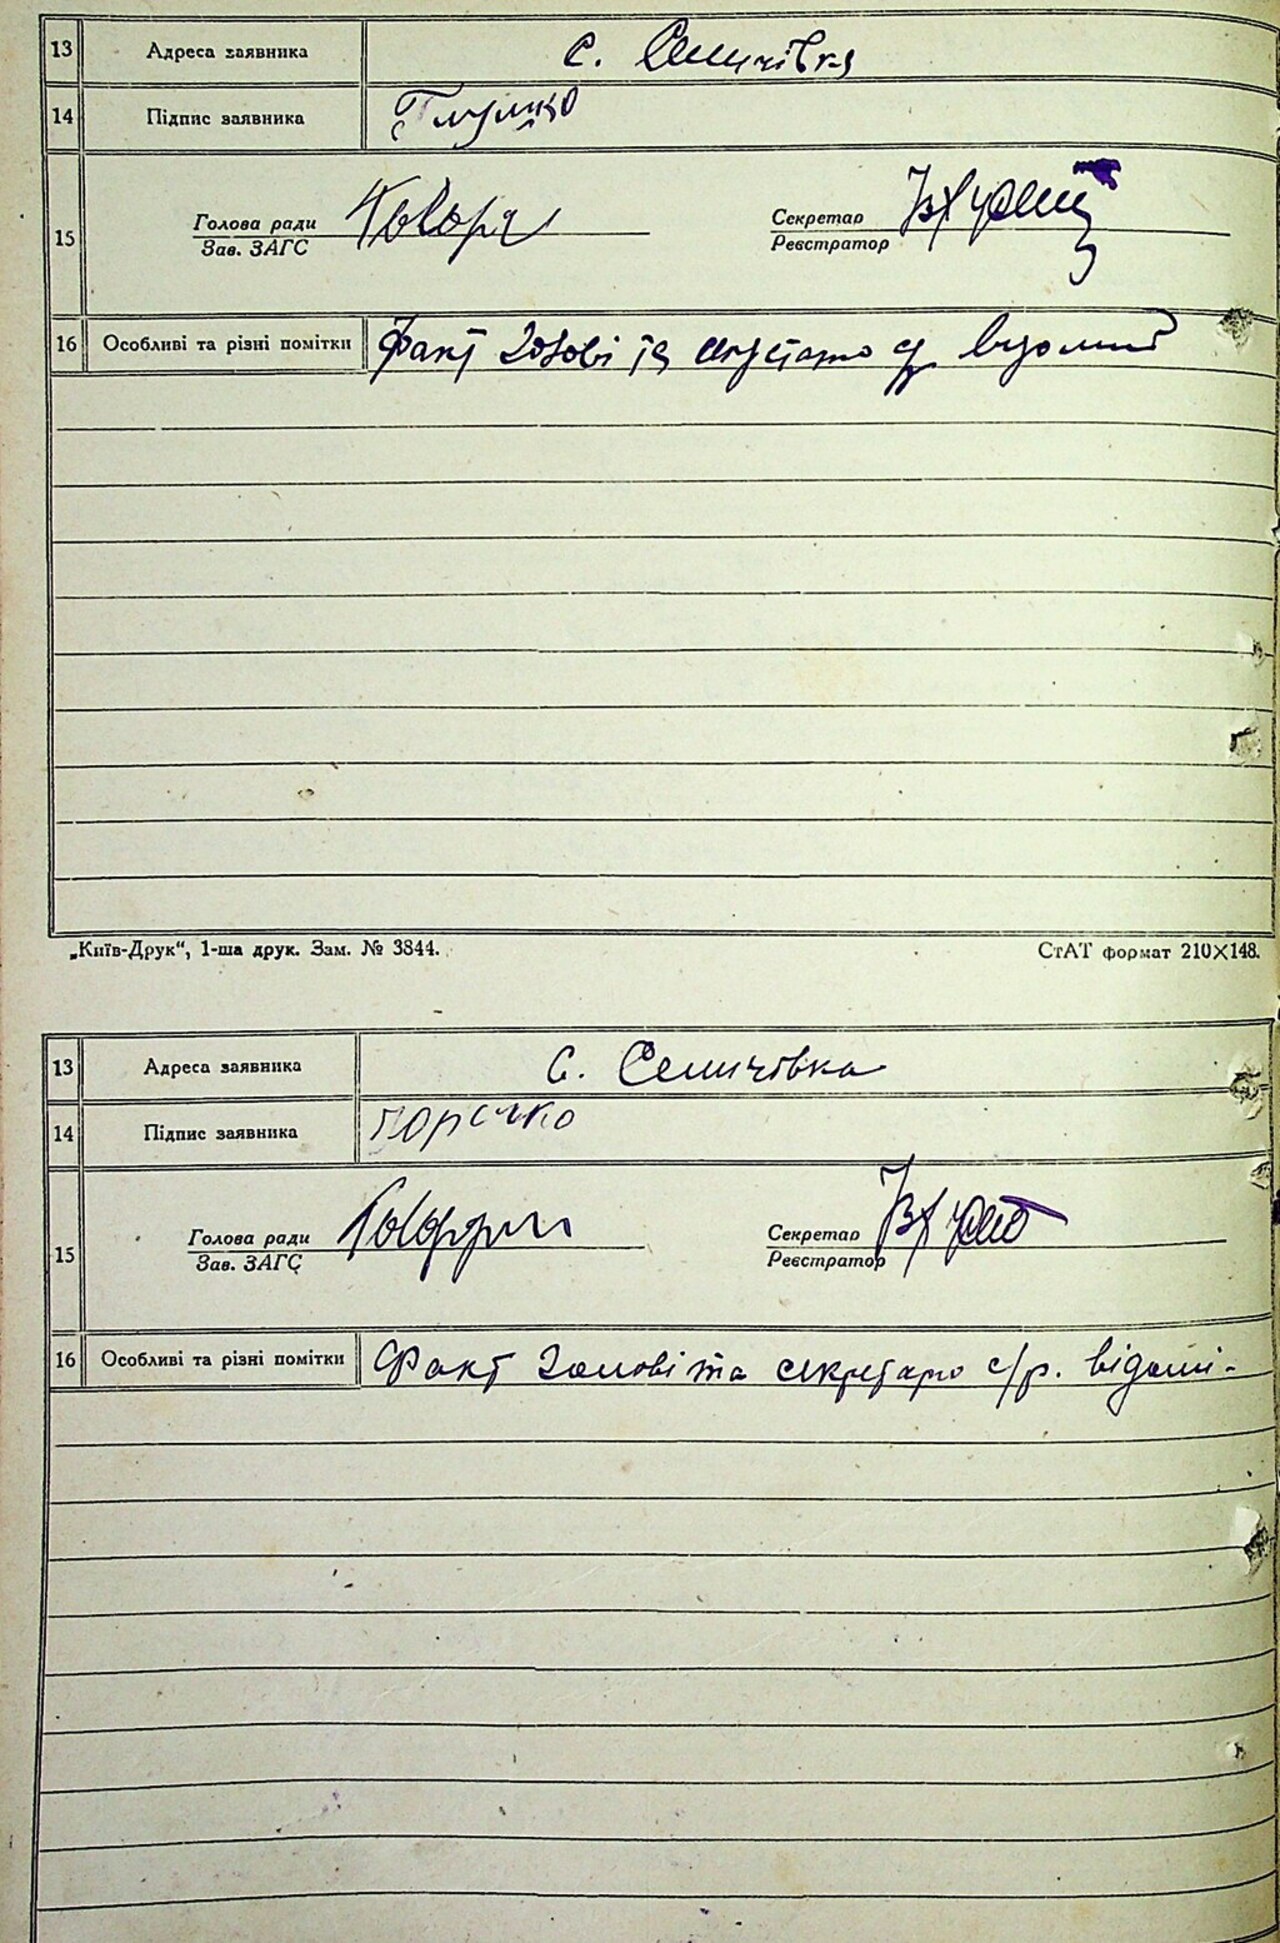 13 Адреса заявника с. Семичівка
14 Підпис заявника
15
Голова ради Секретар
Зав. ЗАГС Реєстратор
16 Особливі та різні помітки Факт голові та секретарю відомий
„Київ-Друк“, 1-ша друк. Зам. № 3844. СтАТ формат 210×148.
13 Адреса заявника С. Семичівка
14 Підпис заявника
15
Голова ради Секретар
Зав. ЗАГС Реєстратор
16 Особливі та різні помітки Факт голові та секретарю с/р.